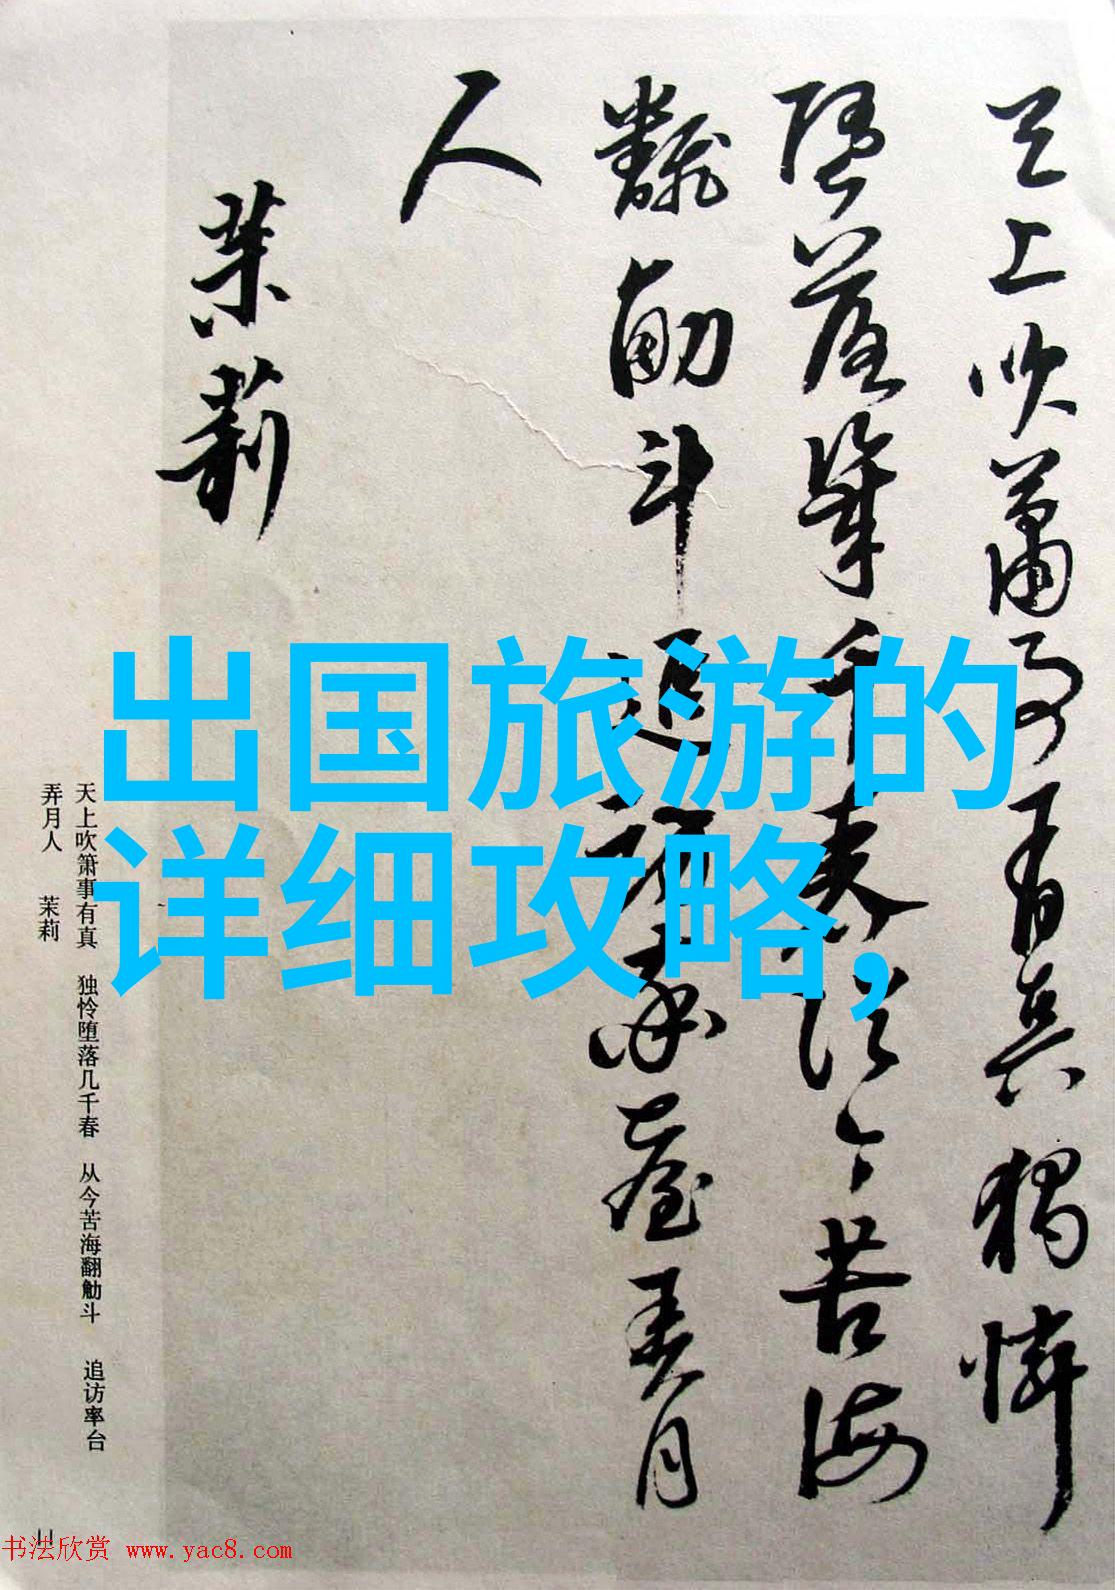 天上吹箫事有真独怜
堕落几千春从今苦海
翻觔斗追访率台弄月
人
茉莉
出国旅游的
详细攻略,
天上吹箫事有真 独怜堕落几千春 从今苦海翻觔斗 追访率台
弄月人 茉莉
11
书法欣赏 www.yac8.com